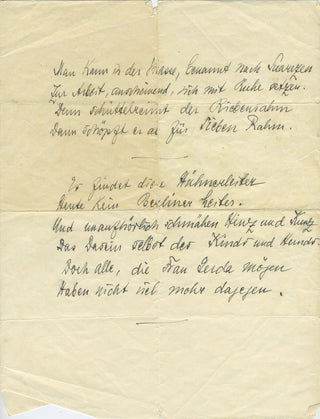 Man kann in der Masse, benannt nach
Zur Arbeit, anscheinend, sich mit Ruhe setzen.
Denn schüttelreimt der
Dann schöpft er ab für sieben Rahm.
So findet die Hühnerleiter
Heute kein Berliner
Und unaufhörlich schmähen Hinz und Kunz
Das Dasein selbst des Kinds und Hunds.
Doch alle, die Frau Gerda mögen
Haben nicht viel mehr dagegen.